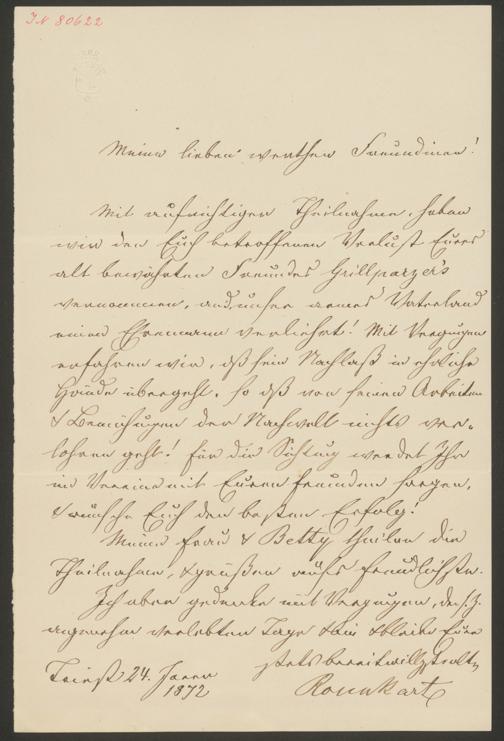 IN 80622
Meine lieben werthen Freundinen!
Mit aufrichtiger Theilnahme, haben
wir den Euch betroffenen Verlust Eures
alt bewährten Freundes Grillparzer's
vernommen, auch unser armes Vaterland
einen Ehrenmann verliehrt! Mit Vergnügen
erfahren wir, dß sein Nachlaß in ehrliche
Hände übergeht, so dß von seinen Arbeiten
& Bemühungen der Nachwelt nichts ver=
lohren geht! für die Sichtung werdet Ihr
im Vereine mit Euren freunden sorgen,
& wünsche Euch den besten Erfolg!
Meine frau & Betty theilen die
Theilnahme, & grüßen aufs freundlichste.
Ich aber gedenke mit Vergnügen, der
angenehm verlebten Tage & bin & bleibe Euer
stets bereitwilligster
Triest 24. Jänner
1872